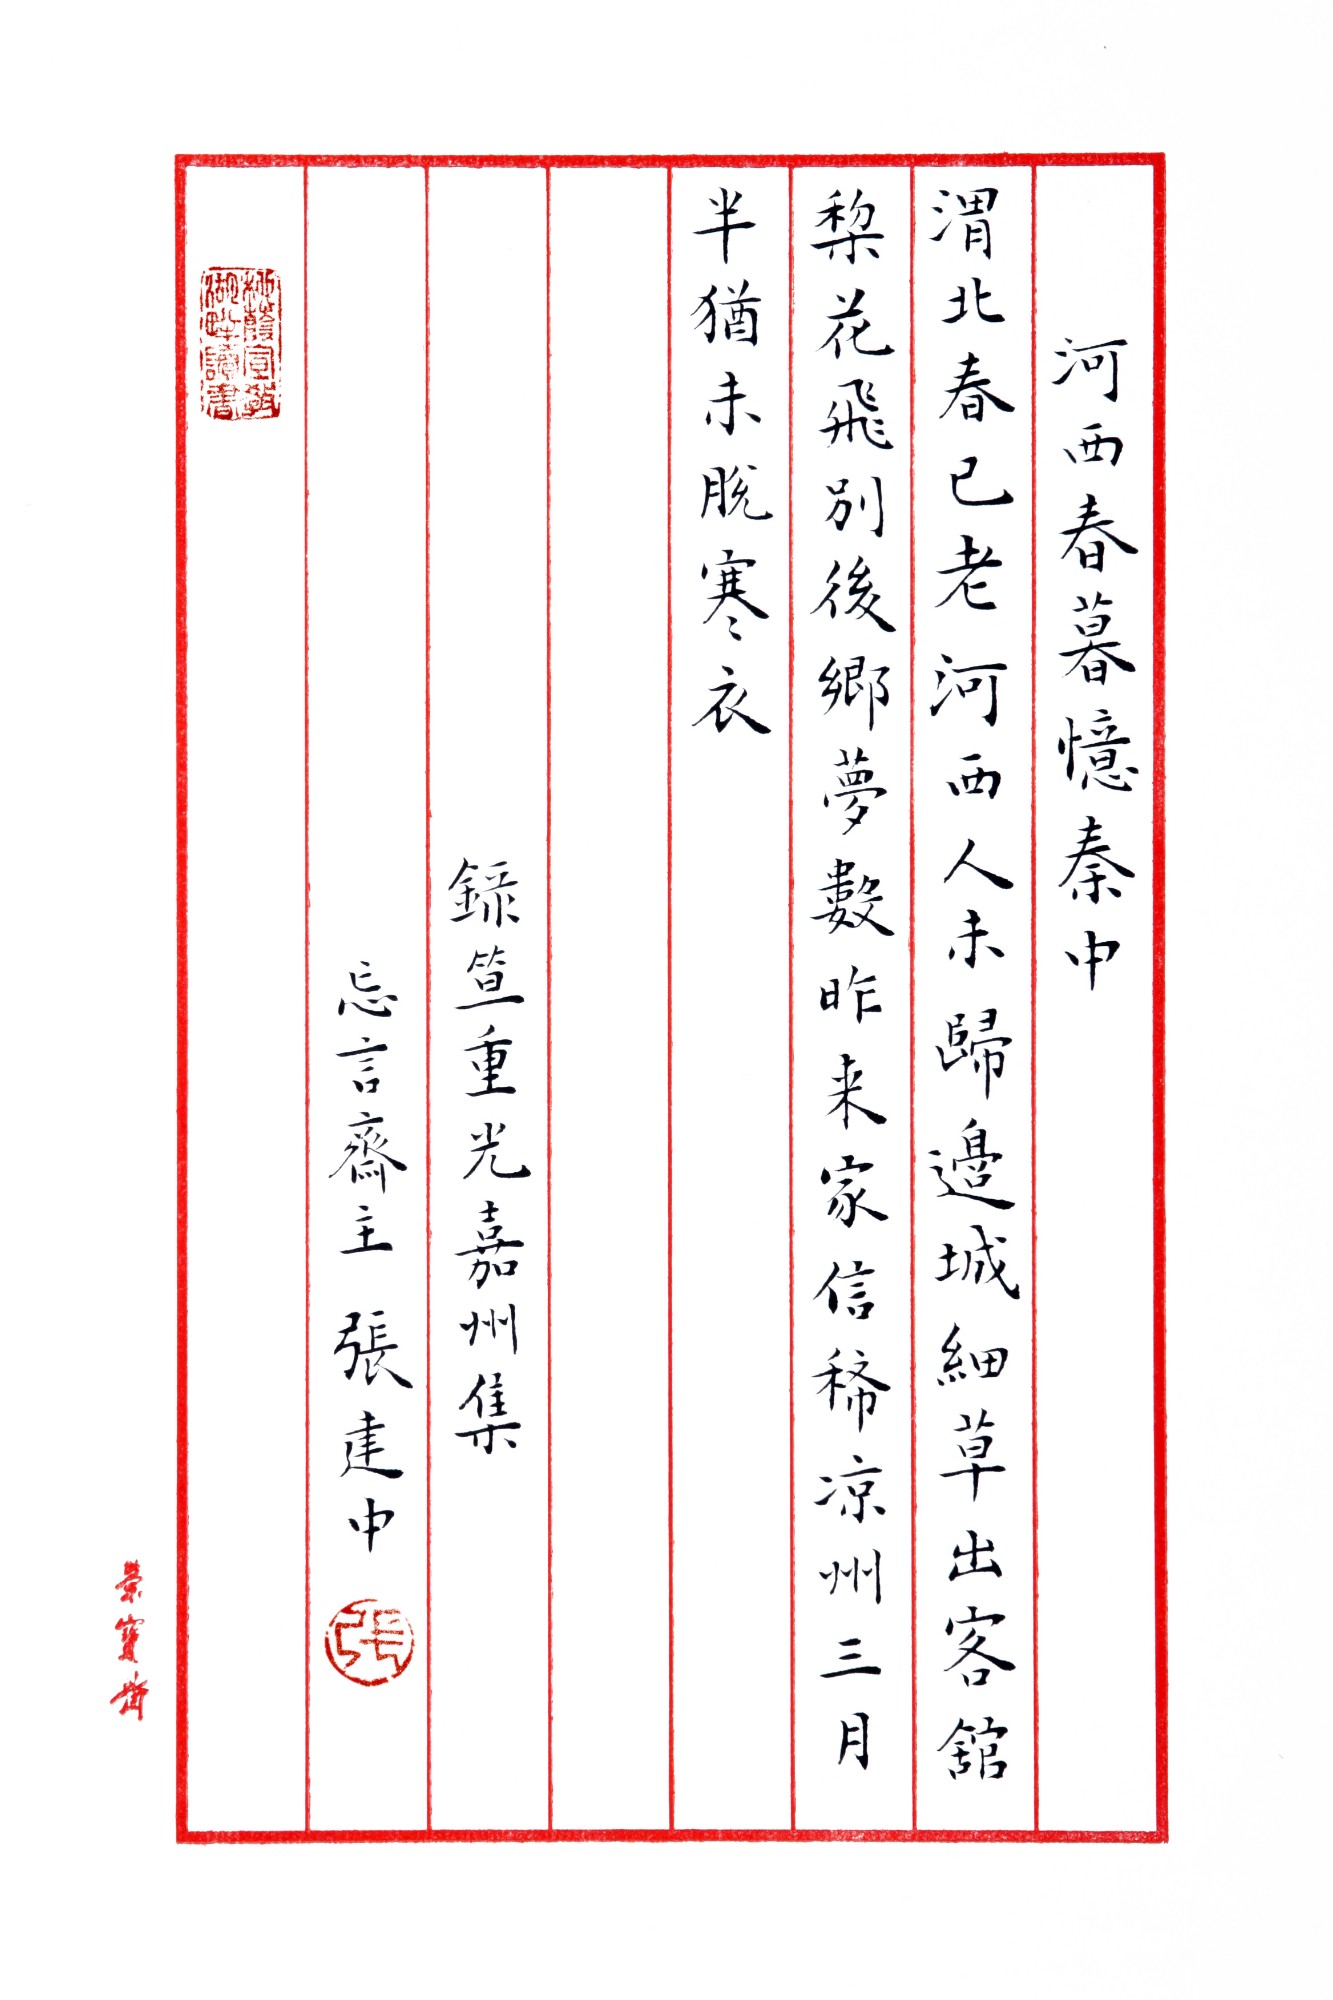 河西春暮憶秦中
渭北春已老河西人未歸邊城細草出客舘
棃花飛別後鄉夢數昨来家信稀凉州三月
半猶未脫寒衣
錄笪重光嘉州集
忘言齋主 張建中
張
榮寶齋